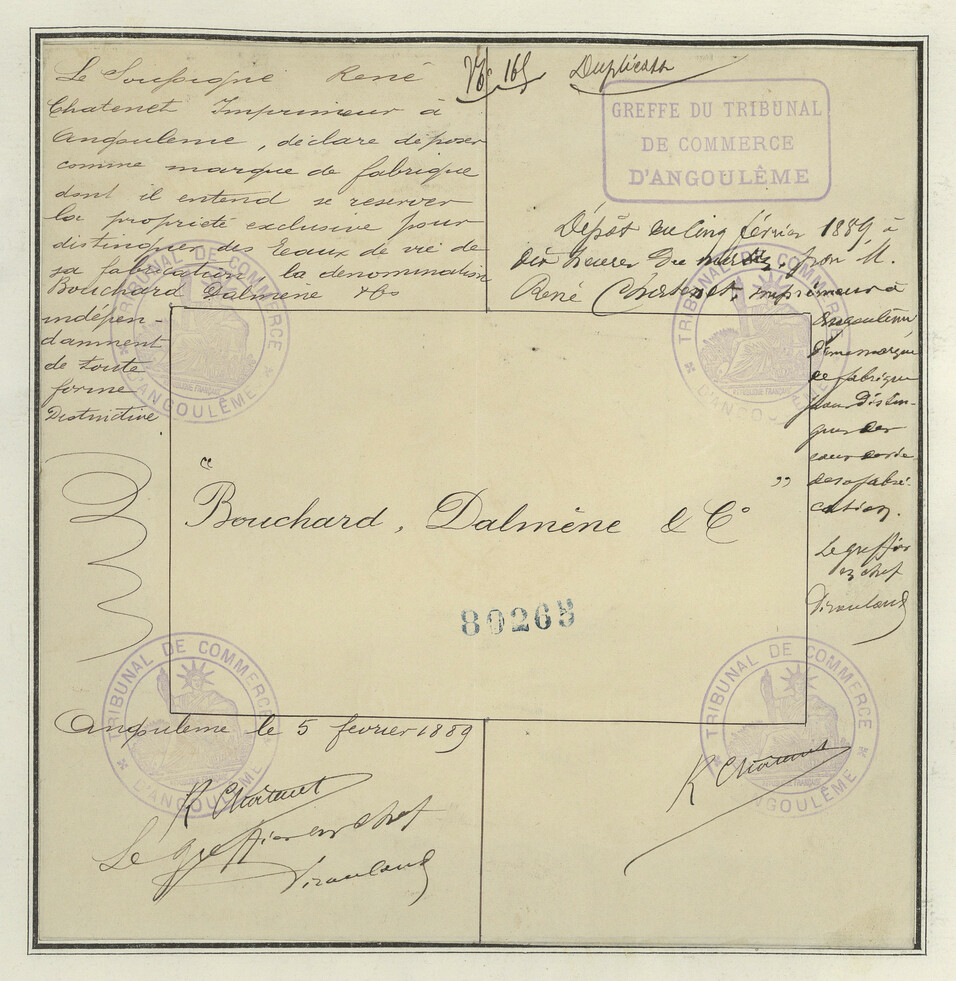 Le Soussigné René
Chatenet Imprimeur à
Angouleme, déclare déposer
comme marque de fabrique
dont il entend se reserver
la propriété exclusive pour
distinguer des Eaux de vie de
sa fabrication la dénomination
Bouchard Dalmène & Co
indépen-
damment
de toute
forme
Distinctive.
No 165 Duplicata
GREFFE DU TRIBUNAL
DE COMMERCE
D'ANGOULÊME
Dépôt du cinq février 1889, à
dix heures du matin, par M.
René Chatenet, imprimeur à
Angoulême,
d'une marque
de fabrique
pour distin-
guer des
eaux de vie
de sa fabri-
cation.
Le greffier
en chef
TRIBUNAL DE COMMERCE
D'ANGOULÊME
TRIBUNAL DE COMMERCE
D'ANGOULÊME
RÉPUBLIQUE FRANÇAISE
" Bouchard, Dalmène & Co "
80265
TRIBUNAL DE COMMERCE
D'ANGOULÊME
TRIBUNAL DE COMMERCE
D'ANGOULÊME
Angouleme le 5 fevrier 1889
R Chatenet
Le greffier en chef
R Chatenet